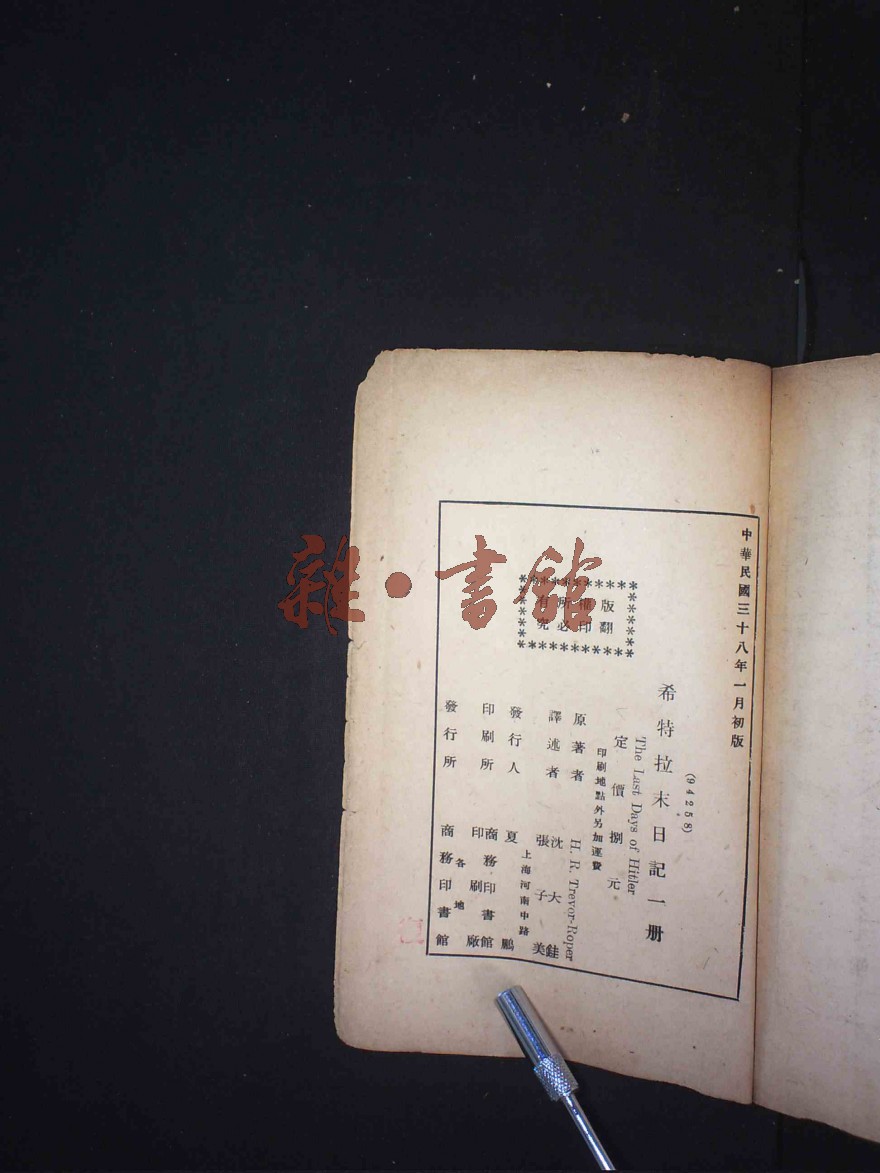 中華民國三十八年一月初版
(94258)
希特拉末日記一册
The Last Days of Hitler
定價捌元
印刷地點外另加運費
版權所有
翻印必究
原著者 H. R. Trevor-Roper
譯述者 沈大銈 張子美
發行人 夏鵬
上海河南中路
印刷所 商務印書館印刷廠
發行所 各地商務印書館
雜·書館